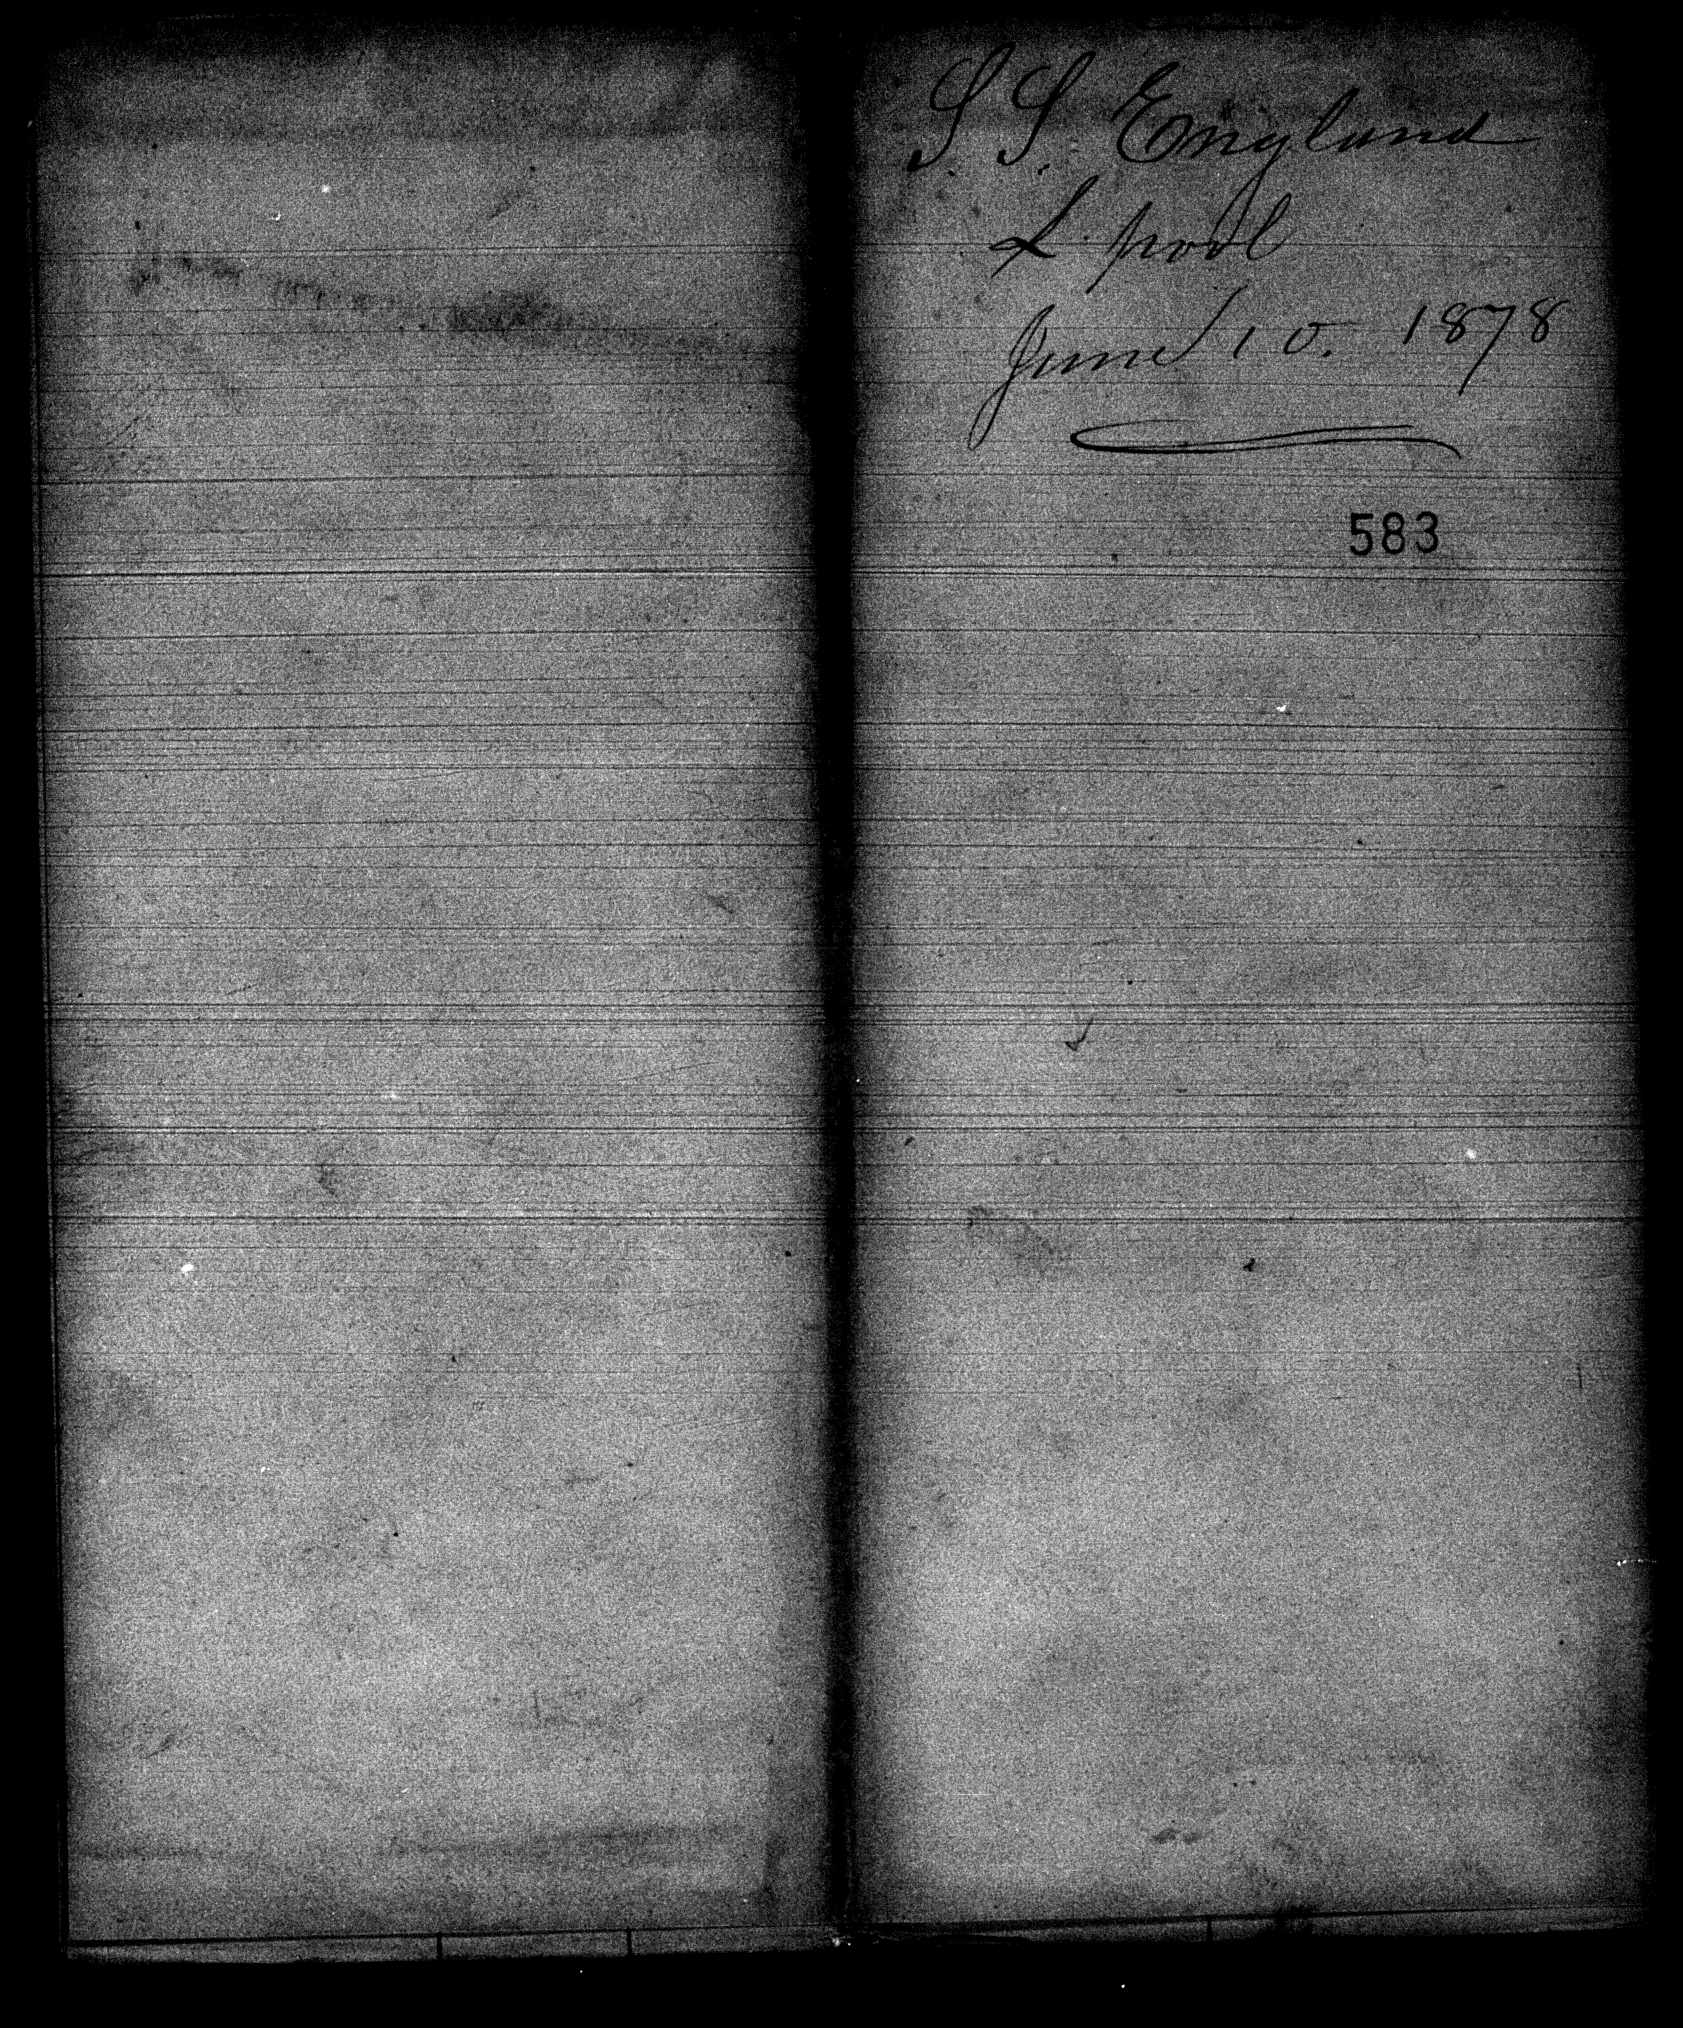 S. S. England
L. pool
June 10. 1878
583